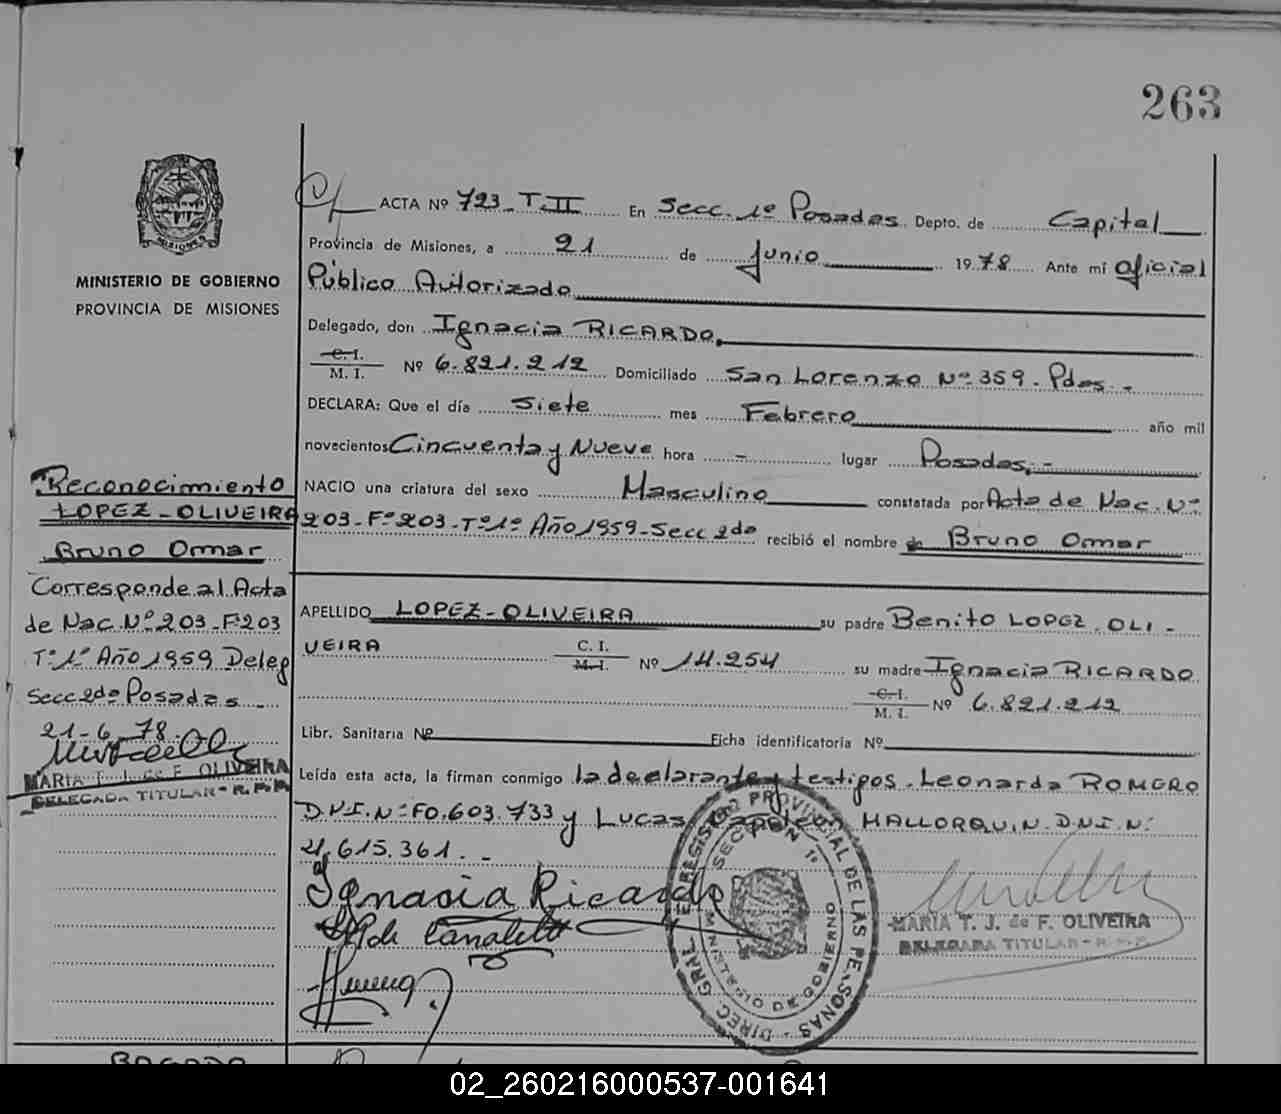 263
MINISTERIO DE GOBIERNO
PROVINCIA DE MISIONES
Reconocimiento
LOPEZ-OLIVEIRA
Bruno Ormar
Corresponde al Acta
de Nac. Nº 203-Fº203
Tº1º Año 1959 Deleg
Secc 2da Posadas
21-6-78.
MARIA T. J. de F. OLIVEIRA
DELEGADA TITULAR - R.P.P.
ACTA Nº 723-T.II En Secc. 1º Posadas Depto. de Capital
Provincia de Misiones, a 21 de Junio 1978 Ante mí Oficial
Público Autorizado
Delegado, don Ignacia RICARDO,
C. I.
M. I. Nº 6.821.212 Domiciliado San Lorenzo Nº 359. Pdas.-
DECLARA: Que el día Siete mes Febrero año mil
novecientos Cincuenta y Nueve hora - lugar Posadas,-
NACIO una criatura del sexo Masculino constatada por Acta de Nac. Nº
203-Fº203-Tº1º Año 1959-Secc 2da recibió el nombre de Bruno Ormar
APELLIDO LOPEZ-OLIVEIRA su padre Benito LOPEZ-OLI-
VEIRA C. I.
M. I. Nº 14.254 su madre Ignacia RICARDO
C. I.
M. I. Nº 6.821.212
Libr. Sanitaria Nº Ficha identificatoria Nº
Leída esta acta, la firman conmigo la declarante y testigos. Leonarda ROMERO
D.N.I. Nº F0.603.733 y Lucas MALLORQUIN. D.N.I. Nº
615.361.-
Ignacia Ricardo
DIREC. GRAL. REGISTRO PROVINCIAL DE LAS PERSONAS
SECCION 1º
MINISTERIO DE GOBIERNO
MARIA T. J. de F. OLIVEIRA
DELEGADA TITULAR - R.P.P.
02_260216000537-001641